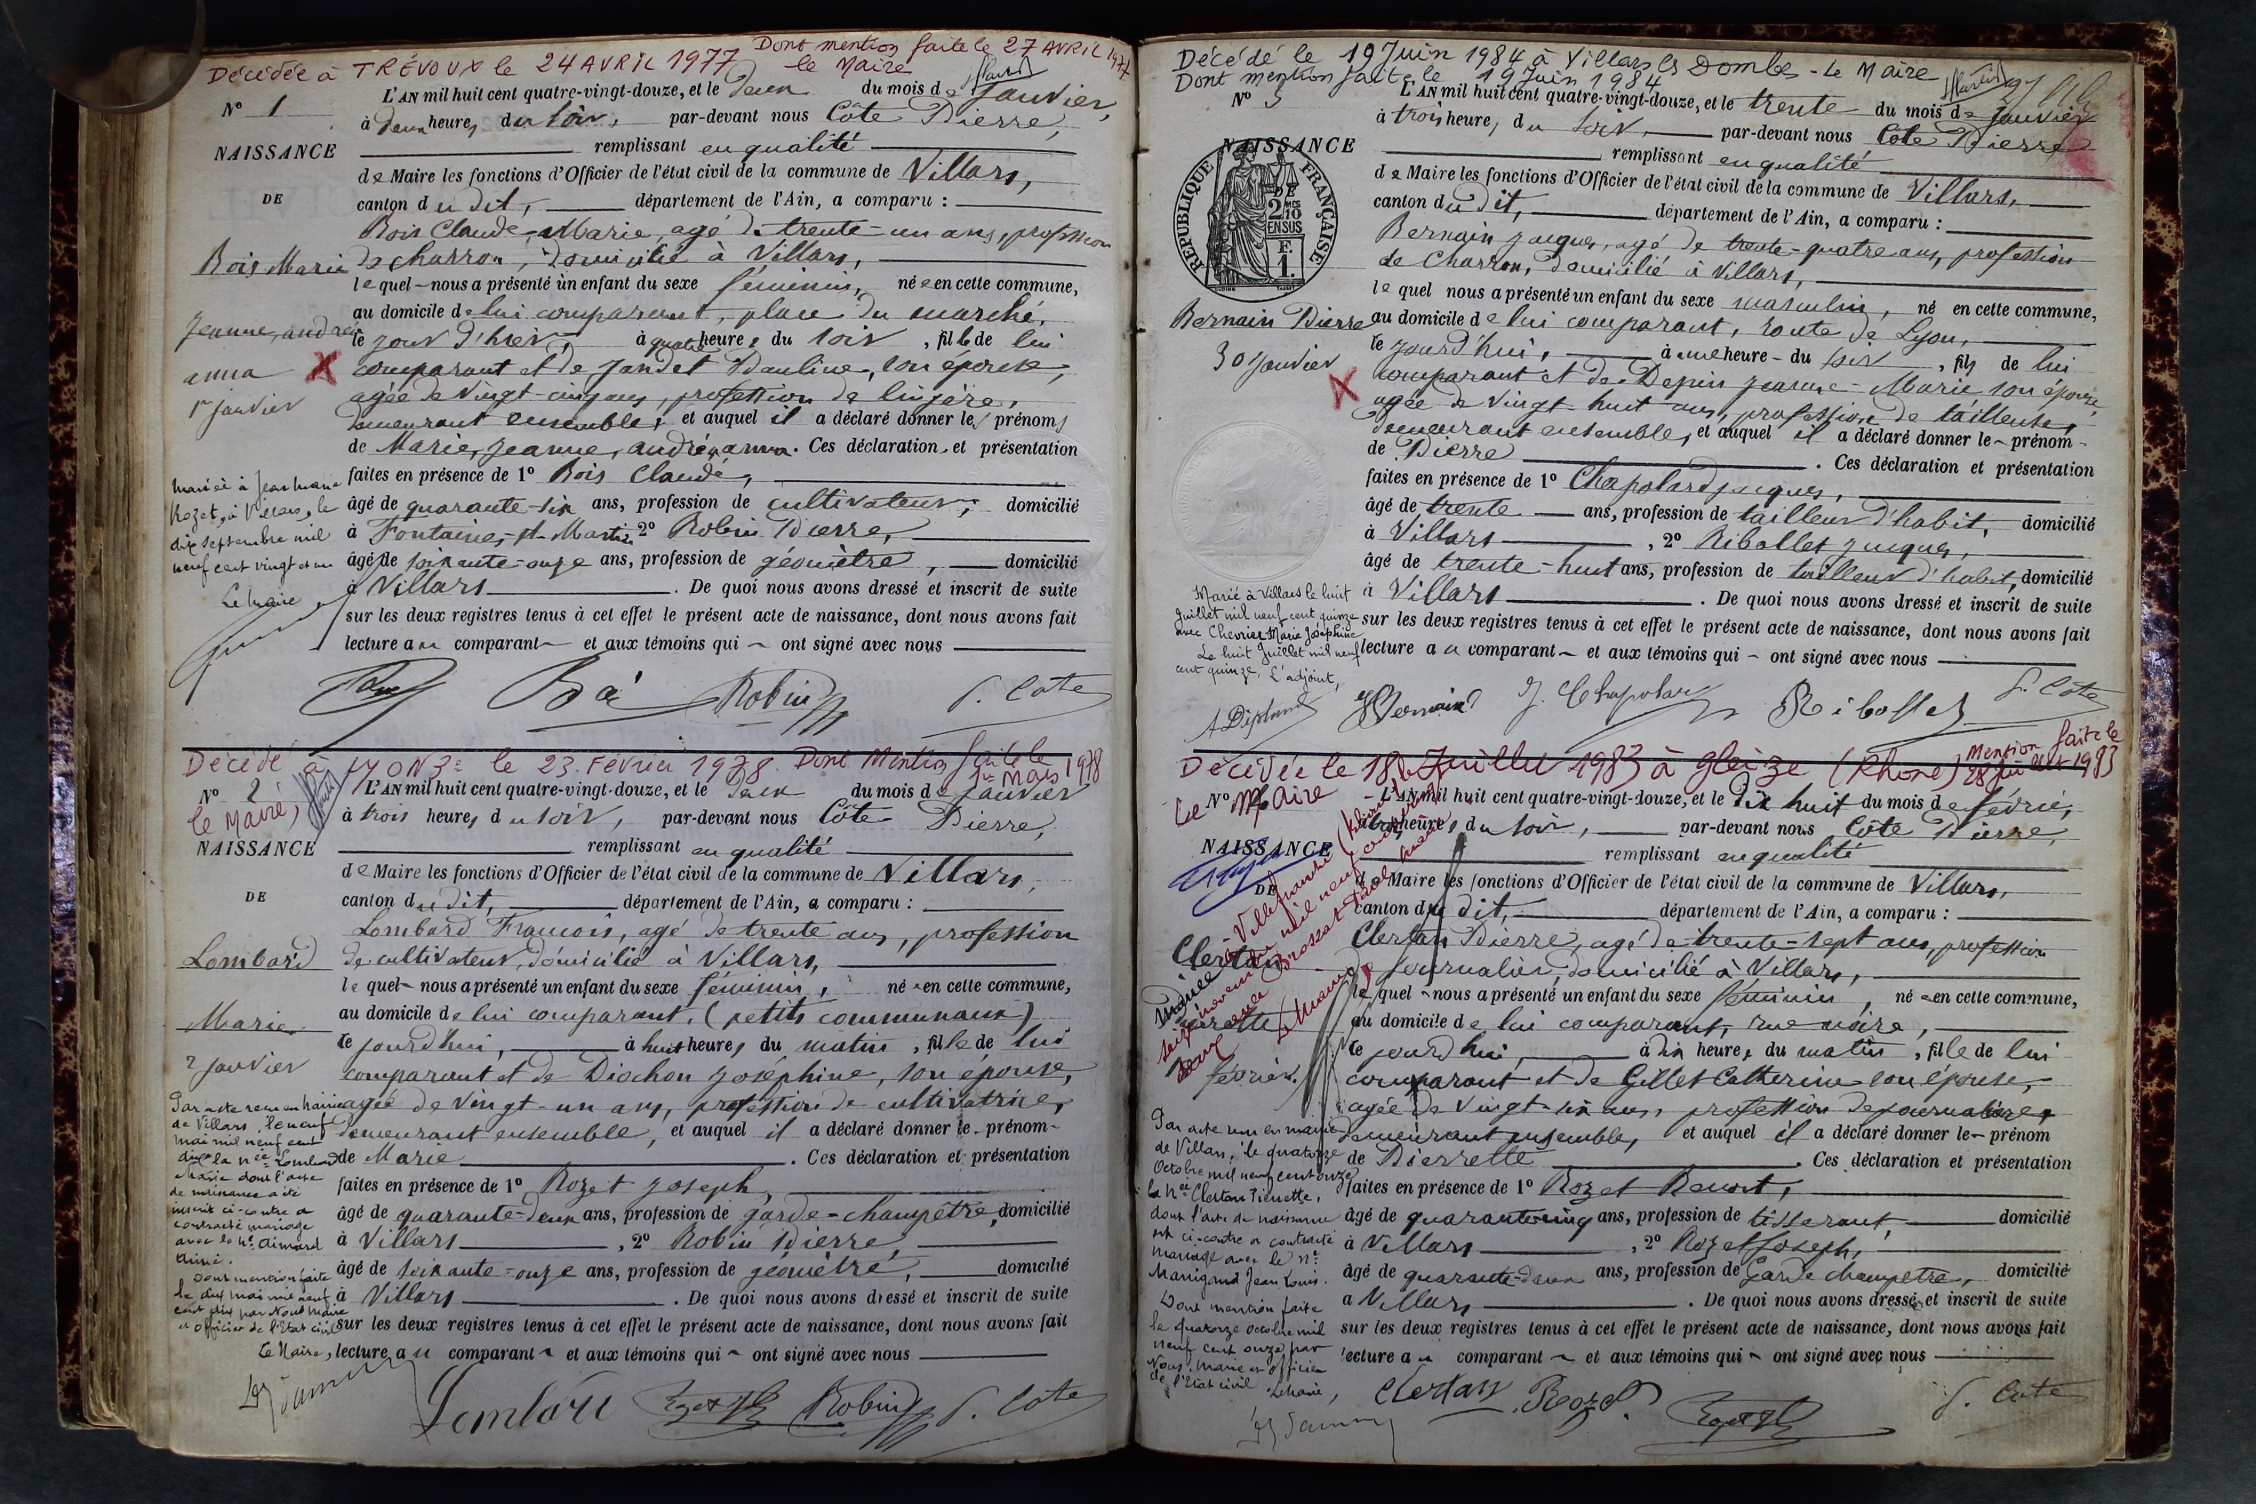 Décédée à TRÉVOUX le 24 AVRIL 1977 Dont mention faite le 27 AVRIL 1977
le Maire
N° 1
L'AN mil huit cent quatre-vingt-douze, et le deux du mois de Janvier,
à deux heures du soir, par-devant nous Côte Pierre,
NAISSANCE
remplissant en qualité
de Maire les fonctions d'Officier de l'état civil de la commune de Villars,
DE
canton du dit, département de l'Ain, a comparu :
Bois Claude-Marie, agé de trente-un ans, profession
Bois Marie
de charron, domicilié à Villars,
lequel nous a présenté un enfant du sexe féminin, née en cette commune,
au domicile de lui comparant, place du marché,
Jeanne, andrée
le jour d'hier, à quatre heures du soir, fille de lui
anna
comparant et de Jandet Pauline, son épouse,
1er Janvier
agée de vingt-cinq ans, profession de lingère,
demeurant ensemble, et auquel il a déclaré donner les prénoms
de Marie, Jeanne, andrée, anna. Ces déclaration et présentation
faites en présence de 1° Bois Claude,
mariée à Jean Marie
Rozet, à Villars, le
dix septembre mil
neuf cent vingt et un
Le Maire
âgé de quarante-six ans, profession de cultivateur, domicilié
à Fontaine-St-Martin 2° Robin Pierre,
âgé de soixante-onze ans, profession de géomètre, domicilié
à Villars. De quoi nous avons dressé et inscrit de suite
sur les deux registres tenus à cet effet le présent acte de naissance, dont nous avons fait
lecture au comparant et aux témoins qui ont signé avec nous
Robin P. Côte
Décédé à LYON 3e le 23 Février 1978. Dont Mention faite le
1er Mars 1978
le Maire,
N° 2
L'AN mil huit cent quatre-vingt-douze, et le deux du mois de Janvier
à trois heures du soir, par-devant nous Côte Pierre,
NAISSANCE
remplissant en qualité
de Maire les fonctions d'Officier de l'état civil de la commune de Villars,
DE
canton du dit, département de l'Ain, a comparu :
Lombard François, agé de trente ans, profession
Lombard
de cultivateur, domicilié à Villars,
lequel nous a présenté un enfant du sexe féminin, née en cette commune,
Marie
au domicile de lui comparant, (petits communaux)
le jourd'hui, à huit heures du matin, fille de lui
2 Janvier
comparant et de Diochon Joséphine, son épouse,
agée de vingt-un ans, profession de cultivatrice,
demeurant ensemble, et auquel il a déclaré donner le prénom
de Marie. Ces déclaration et présentation
faites en présence de 1° Rozet Joseph,
âgé de quarante-deux ans, profession de garde-champêtre, domicilié
à Villars, 2° Robin Pierre,
âgé de soixante-onze ans, profession de géomètre, domicilié
à Villars. De quoi nous avons dressé et inscrit de suite
sur les deux registres tenus à cet effet le présent acte de naissance, dont nous avons fait
lecture au comparant et aux témoins qui ont signé avec nous
Par acte reçu en mairie
de Villars, le neuf
mai mil neuf cent
dix la née Lombard
Marie dont l'acte
de naissance a été
inscrit ci-contre a
contracté mariage
avec le né Aimard
Dont mention faite
le dix mai mil neuf
cent dix par Nous Maire
et Officier de l'Etat civil
Le Maire,
Lombard Robin P. Côte
Décédé le 19 Juin 1984 à Villars les Dombes - Le Maire
Dont mention faite le 19 Juin 1984
N° 3
L'AN mil huit cent quatre-vingt-douze, et le trente du mois de Janvier
à trois heures du soir, par-devant nous Côte Pierre
NAISSANCE
remplissant en qualité
de Maire les fonctions d'Officier de l'état civil de la commune de Villars,
DE
RÉPUBLIQUE FRANÇAISE
2 MES
10
EN SUS
F.
1.
canton du dit, département de l'Ain, a comparu :
Bernain Jacques, agé de trente-quatre ans, profession
de Charron, domicilié à Villars,
lequel nous a présenté un enfant du sexe masculin, né en cette commune,
Bernain Pierre
au domicile de lui comparant, route de Lyon,
30 Janvier
le jourd'hui, à une heure du soir, fils de lui
comparant et de Depin Jeanne-Marie son épouse,
agée de vingt-huit ans, profession de tailleuse,
demeurant ensemble, et auquel il a déclaré donner le prénom
de Pierre. Ces déclaration et présentation
faites en présence de 1° Chapolard Jacques,
âgé de trente ans, profession de tailleur d'habit, domicilié
à Villars, 2° Ribollet Jacques,
âgé de trente-huit ans, profession de tailleur d'habit, domicilié
à Villars. De quoi nous avons dressé et inscrit de suite
sur les deux registres tenus à cet effet le présent acte de naissance, dont nous avons fait
lecture au comparant et aux témoins qui ont signé avec nous
Marié à Villars le huit
Juillet mil neuf cent quinze
avec Chevrier Marie Joséphine
Le huit Juillet mil neuf
cent quinze, L'adjoint,
Bernain J. Chapolard Ribollet P. Côte
Décédée le 18 Juillet 1983 à Gleizé (Rhône) Mention faite le
28 Juillet 1983
Le Maire
N° 4
L'AN mil huit cent quatre-vingt-douze, et le dix huit du mois de février,
heures du soir, par-devant nous Côte Pierre,
NAISSANCE
remplissant en qualité
DE
de Maire les fonctions d'Officier de l'état civil de la commune de Villars,
canton du dit, département de l'Ain, a comparu :
Clertan
Clertan Pierre, agé de trente-sept ans, profession
de journalier, domicilié à Villars,
lequel nous a présenté un enfant du sexe féminin, née en cette commune,
Pierrette
au domicile de lui comparant, rue noire,
le jourd'hui, à dix heures du matin, fille de lui
février.
comparant et de Gillet Catherine son épouse,
agée de vingt-six ans, profession de journalière,
demeurant ensemble, et auquel il a déclaré donner le prénom
de Pierrette. Ces déclaration et présentation
faites en présence de 1° Rozet Benoit,
âgé de quarante-cinq ans, profession de tisserant, domicilié
à Villars, 2° Rozet Joseph,
âgé de quarante-deux ans, profession de Garde champêtre, domicilié
à Villars. De quoi nous avons dressé et inscrit de suite
sur les deux registres tenus à cet effet le présent acte de naissance, dont nous avons fait
lecture au comparant et aux témoins qui ont signé avec nous
Par acte reçu en mairie
de Villars, le quatorze
Octobre mil neuf cent onze
la née Clertan Pierrette,
dont l'acte de naissance
est ci-contre a contracté
mariage avec le né
Manigand Jean Louis.
Dont mention faite
le quatorze octobre mil
neuf cent onze par
Nous, Maire et officier
de l'Etat civil Le Maire,
Clertan Rozet P. Côte